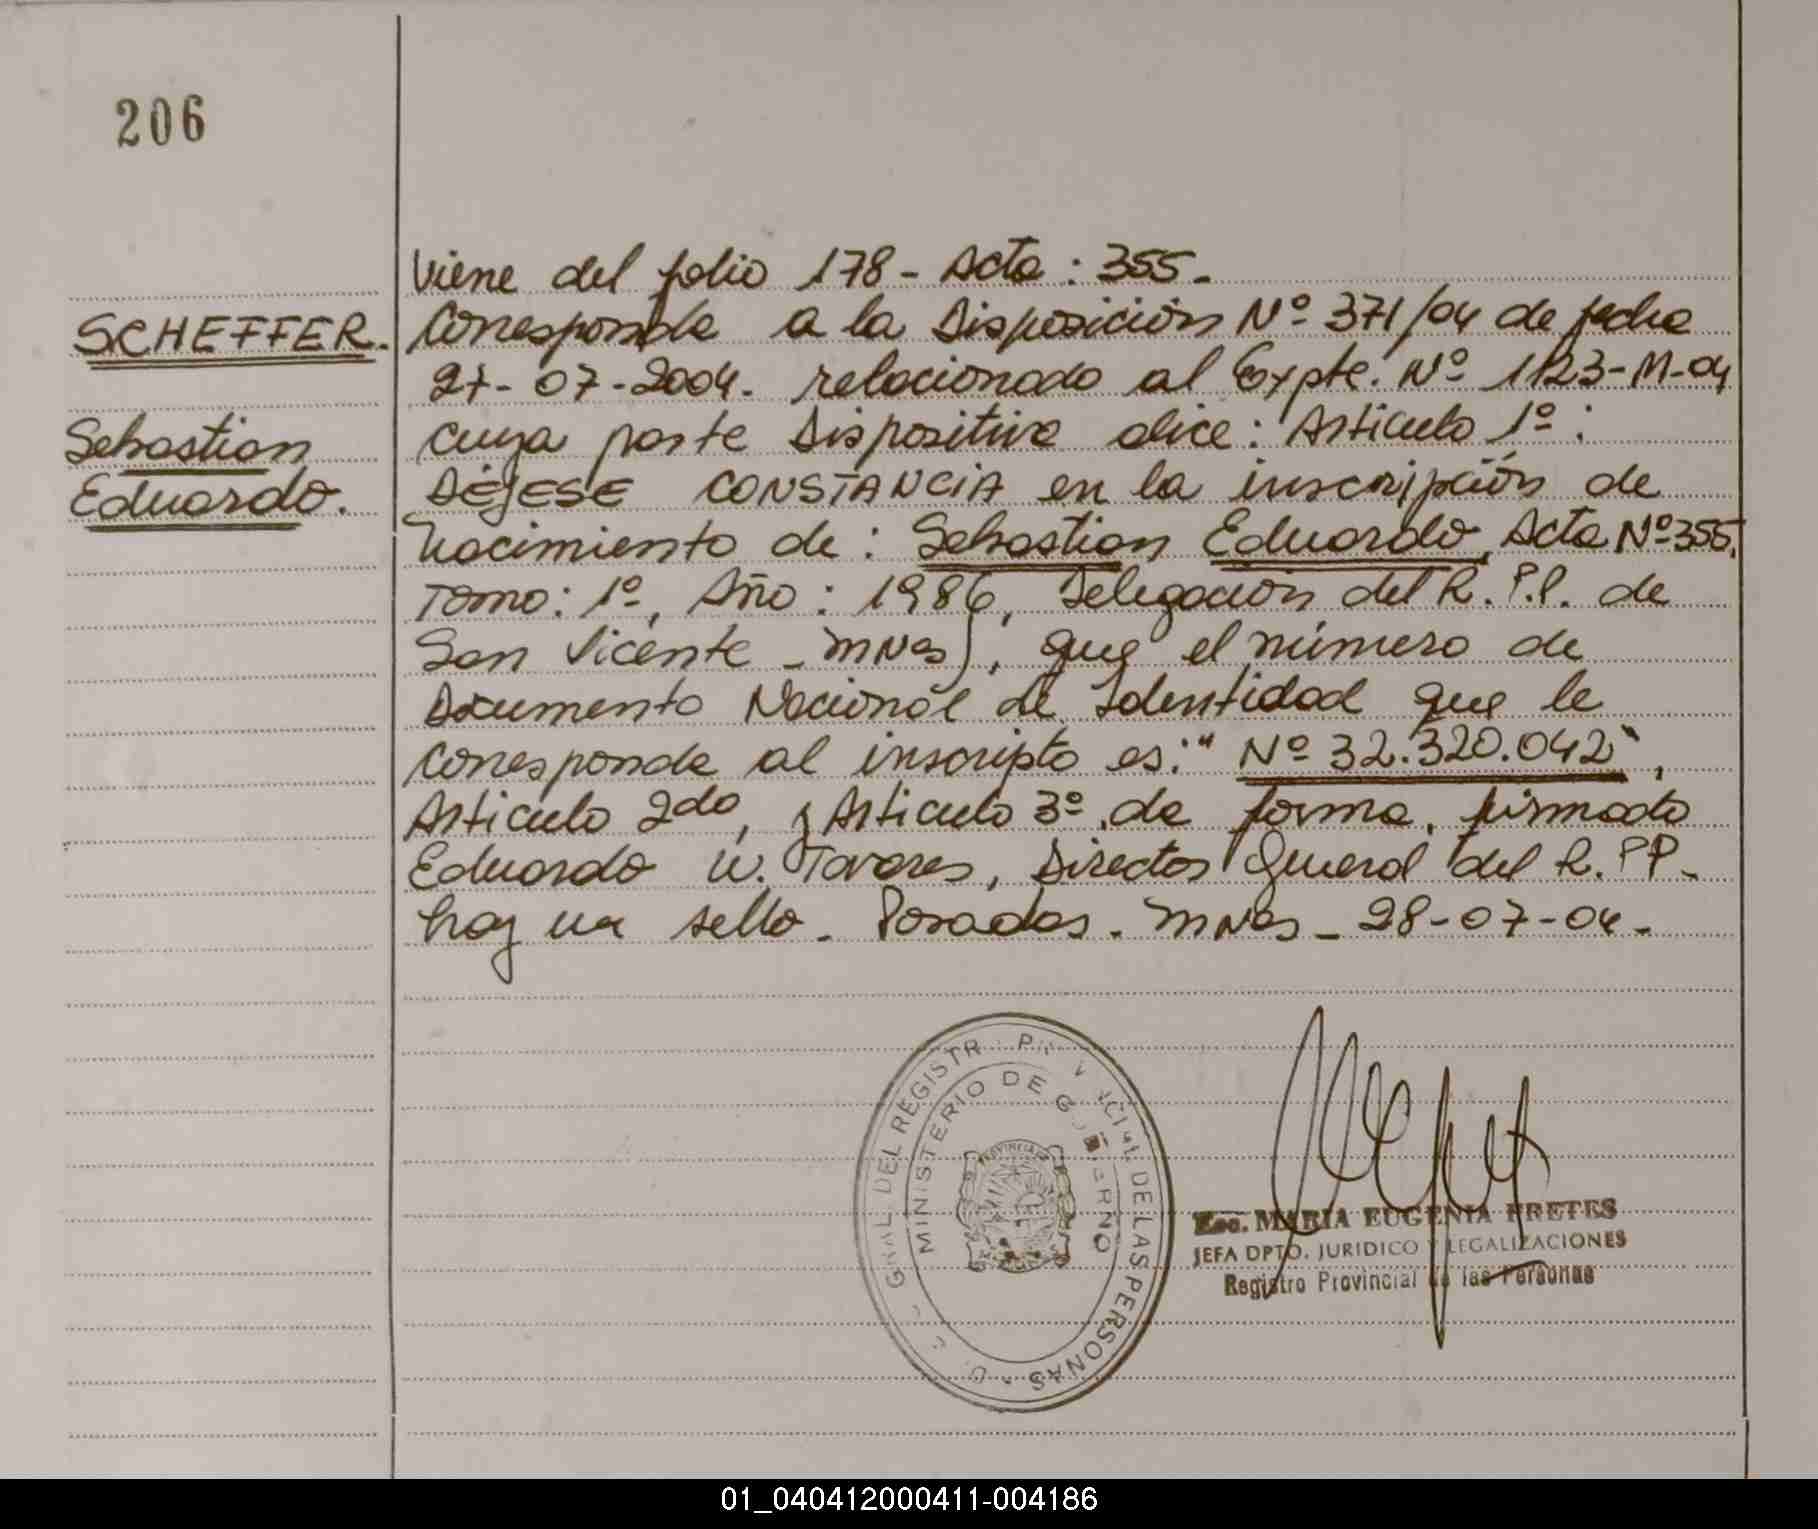 206
SCHEFFER.
Sebastian
Eduardo.
Viene del folio 178 - Acta : 355 -
Corresponde a la Disposición Nº 371/04 de fecha
27-07-2004. relacionado al Expte. Nº 1123-M-04
cuya parte Dispositiva dice: Articulo 1º :
DÉJESE CONSTANCIA en la inscripción de
Nacimiento de : Sebastian Eduardo, Acta Nº 355,
Tomo: 1º, Año : 1986, Delegación del R. P.P. de
San Vicente - Mnes), que el número de
Documento Nacional de Identidad que le
corresponde al inscripto es: " Nº 32.320.042",
Articulo 2do, y Articulo 3º. de forma. firmado
Eduardo W. Tavares, Director General del R. PP-
hay un sello - Posadas. Mnes - 28-07-04 -
GRAL. DEL REGISTR PROVINCIAL DE LAS PERSONAS
MINISTERIO DE GOBIERNO
PROVINCIA
Esc. MARIA EUGENIA FRETES
JEFA DPTO. JURIDICO Y LEGALIZACIONES
Registro Provincial de las Personas
01_040412000411-004186